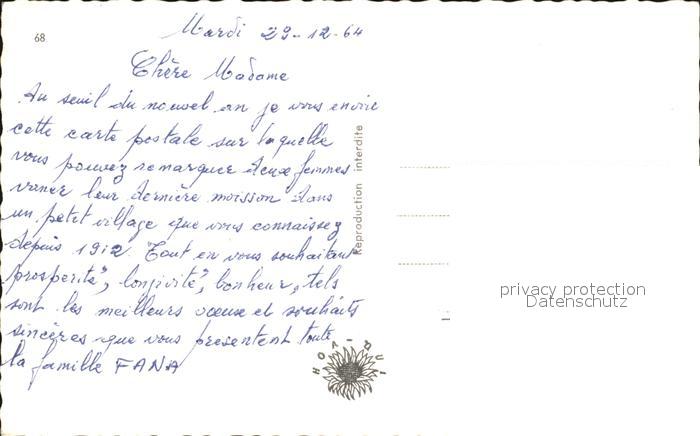 68
Mardi 29-12-64
Chère Madame
Au seuil du nouvel an je vous envoie
cette carte postale sur laquelle
vous pouvez remarquer deux femmes
vaner leur dernière moisson dans
un petit village que vous connaissez
depuis 1912. Tout en vous souhaitant
prosperité, longivité, bonheur, tels
sont les meilleurs voeux et souhaits
sincères que vous presentent toute
la famille FANA
Reproduction interdite
HOA-QUI
privacy protection
Datenschutz